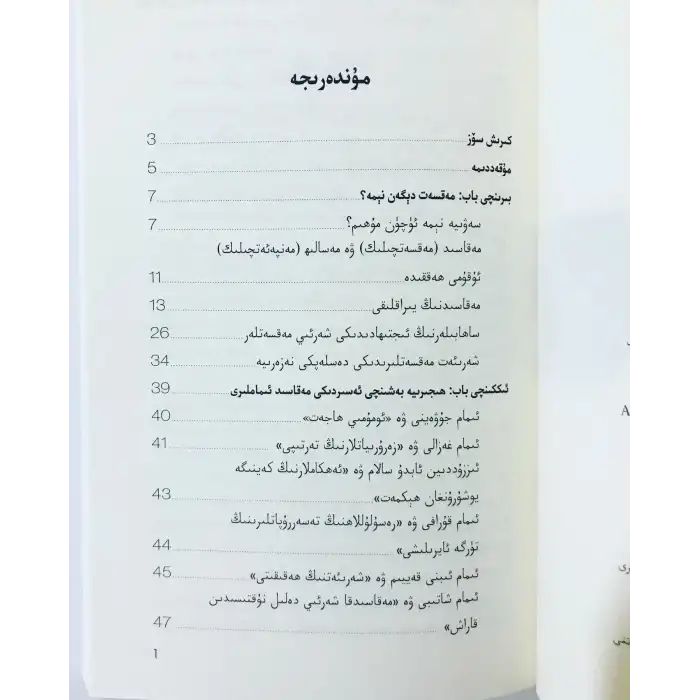 مۇندەرىجە
كىرىش سۆز 3
مۇقەددىمە 5
بىرىنچى باب: مەقسەت دېگەن نېمە؟ 7
سەۋىيە نېمە ئۈچۈن مۇھىم؟ 7
مەقاسىد (مەقسەتچىلىك) ۋە مەسالىھ (مەنپەئەتچىلىك)
ئۇقۇمى ھەققىدە 11
مەقاسىدنىڭ يىراقلىقى 13
ساھابىلەرنىڭ ئىجتىھادىدىكى شەرئىي مەقسەتلەر 26
شەرىئەت مەقسەتلىرىدىكى دەسلەپكى نەزەرىيە 34
ئىككىنچى باب: ھىجىرىيە بەشىنچى ئەسىردىكى مەقاسىد ئىماملىرى 39
ئىمام جۇۋەينى ۋە «ئومۇمىي ھاجەت» 40
ئىمام غەزالى ۋە «زەرۇرىياتلارنىڭ تەرتىپى» 41
ئىززۇددىين ئابدۇ سالام ۋە «ئەھكاملارنىڭ كەينىگە
يوشۇرۇنغان ھېكمەت» 43
ئىمام قۇرافى ۋە «رەسۇلۇللاھنىڭ تەسەررۇپاتلىرىنىڭ
تۈرگە ئايرىلىشى» 44
ئىمام ئىبنى قەييىم ۋە «شەرىئەتنىڭ ھەقىقىتى» 45
ئىمام شاتىبى ۋە «مەقاسىدقا شەرئىي دەلىل نۇقتىسىدىن
قاراش» 47
1
A